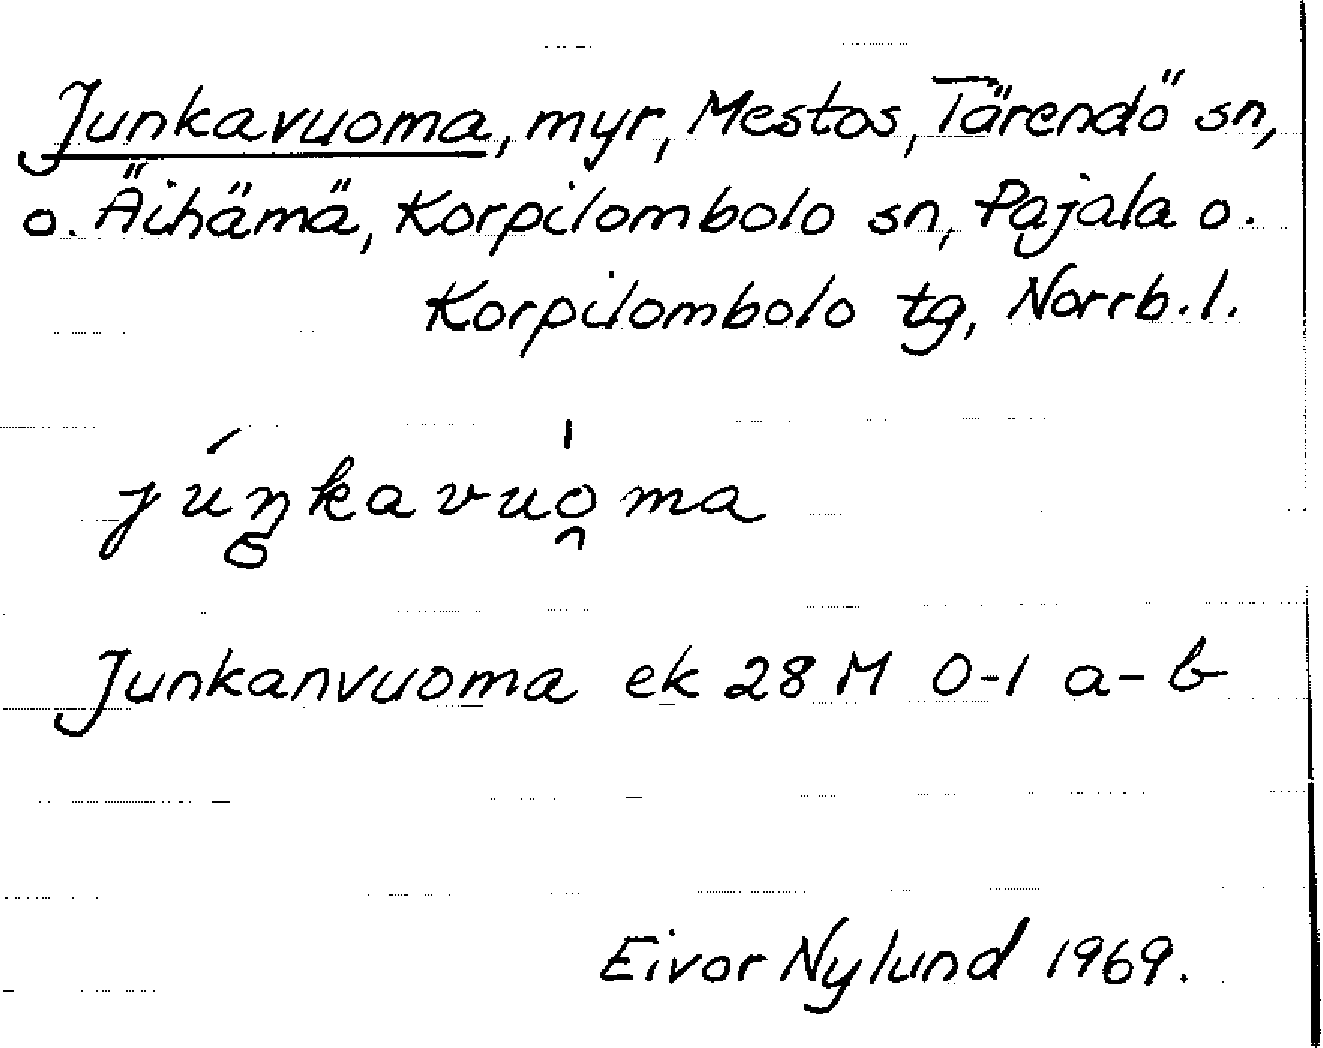 Junkavuoma, myr, Mestos, Tärendö sn,
o. Äihämä, Korpilombolo sn, Pajala o.
Korpilombolo tg, Norrb.l.
júŋkavuo̯ma
Junkanvuoma ek 28 M 0-1 a-b
Eivor Nylund 1969.